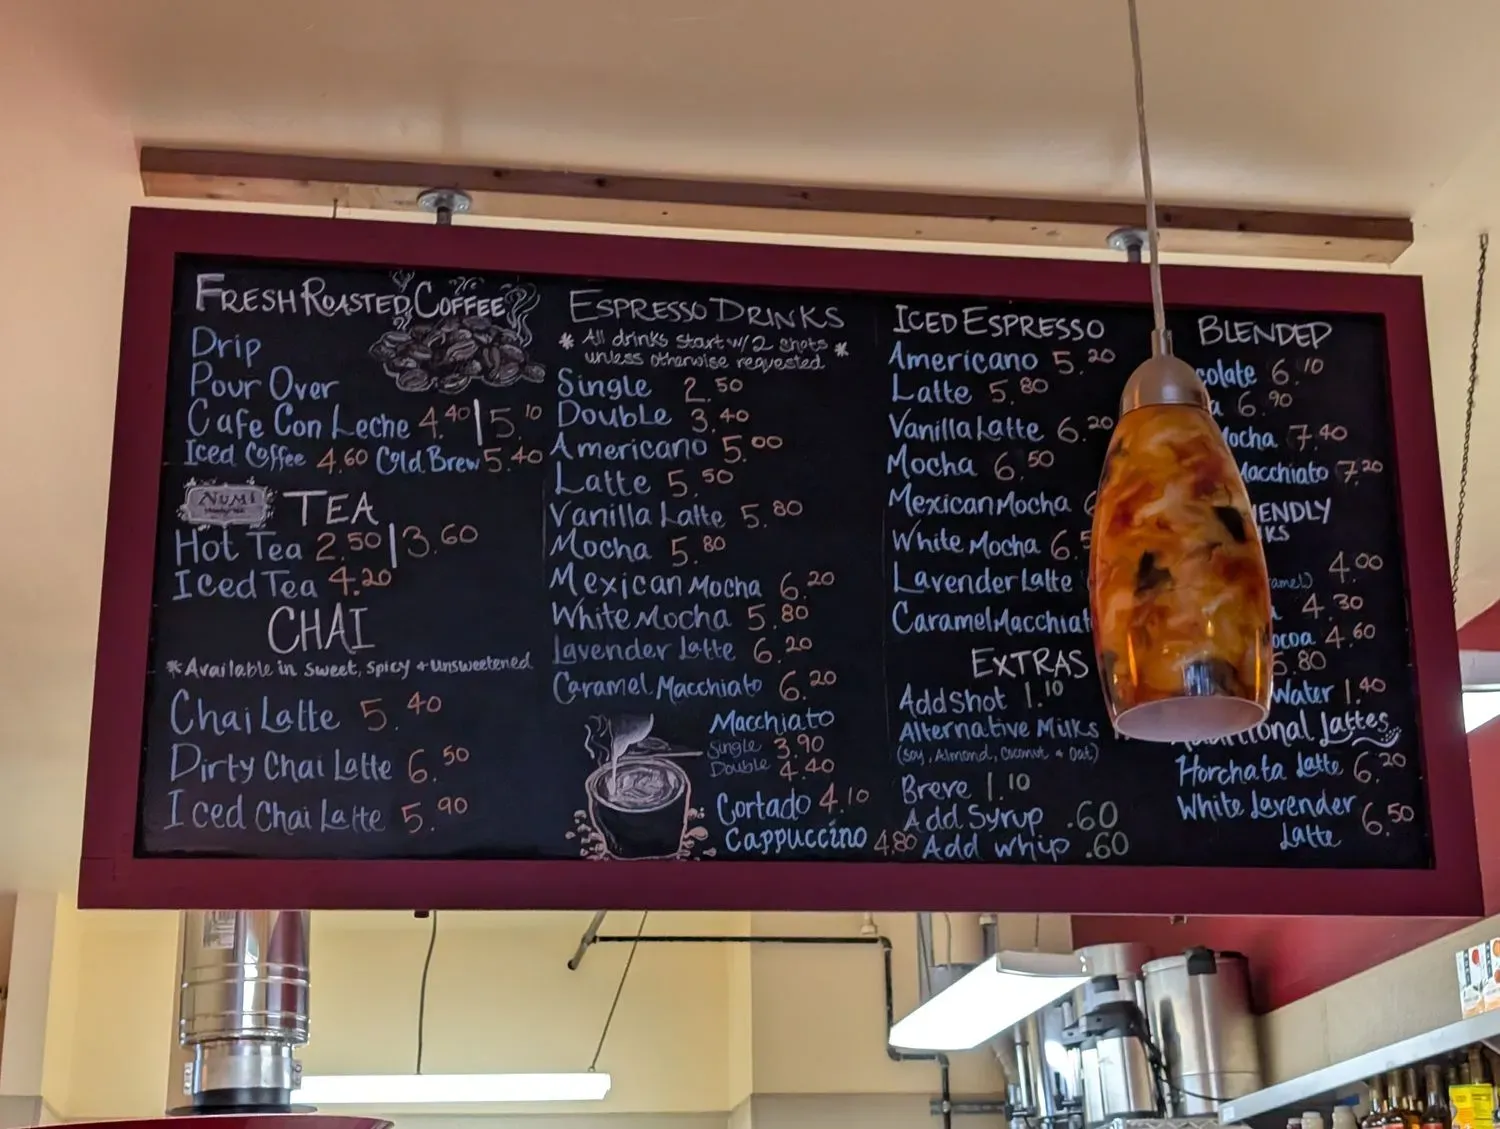 FRESH ROASTED COFFEE
Drip
Pour Over
Cafe Con Leche 4.40 | 5.10
Iced Coffee 4.60 Cold Brew 5.40
NUMI
TEA
Hot Tea 2.50 | 3.60
Iced Tea 4.20
CHAI
*Available in sweet, spicy + unsweetened
Chai Latte 5.40
Dirty Chai Latte 6.50
Iced Chai Latte 5.90
ESPRESSO DRINKS
* All drinks start w/ 2 shots *
unless otherwise requested
Single 2.50
Double 3.40
Americano 5.00
Latte 5.50
Vanilla Latte 5.80
Mocha 5.80
Mexican Mocha 6.20
White Mocha 5.80
Lavender Latte 6.20
Caramel Macchiato 6.20
Macchiato
Single 3.90
Double 4.40
Cortado 4.10
Cappuccino 4.80
ICED ESPRESSO
Americano 5.20
Latte 5.80
Vanilla Latte 6.20
Mocha 6.50
Mexican Mocha
White Mocha
Lavender Latte
Caramel
EXTRAS
Add Shot 1.10
Alternative Milks
(Soy, Almond, Coconut & Oat)
Breve 1.10
Add Syrup .60
Add whip .60
BLENDED
6.10
6.90
Mocha 7.40
Macchiato 7.20
4.00
4.30
4.60
Water 1.40
Lattes
Horchata Latte 6.20
White Lavender
Latte 6.50